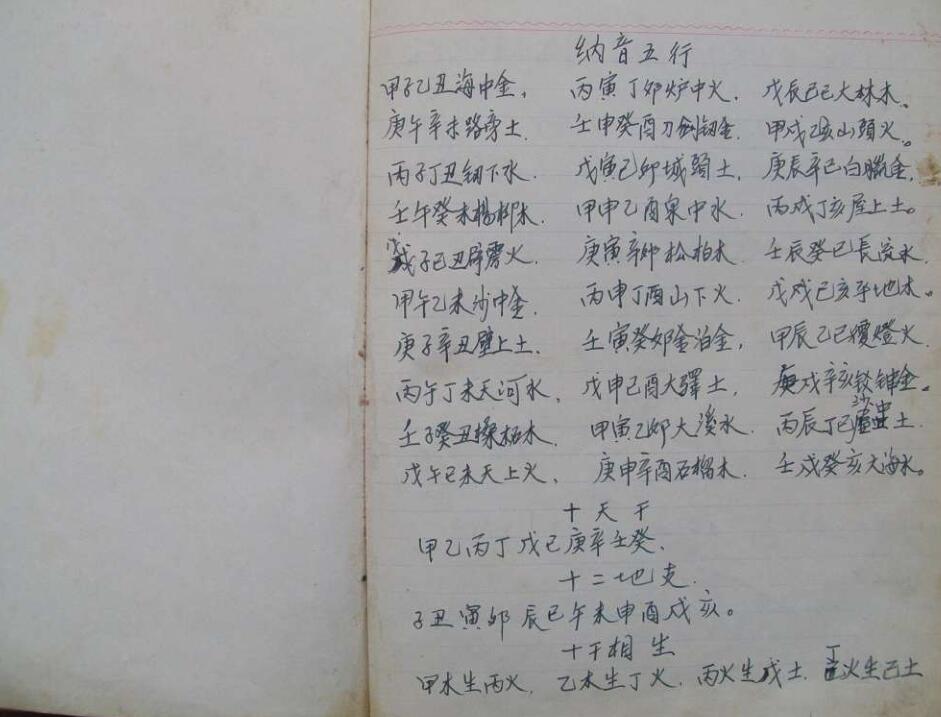 纳音五行
甲子乙丑海中金, 丙寅丁卯炉中火. 戊辰己巳大林木。
庚午辛未路旁土. 壬申癸酉刀劍釼金. 甲戌乙亥山頭火。
丙子丁丑澗下水. 戊寅己卯城頭土, 庚辰辛巳白臘金,
壬午癸未楊柳木. 甲申乙酉泉中水. 丙戌丁亥屋上土。
戊子己丑霹靂火. 庚寅辛卯松柏木. 壬辰癸巳長流水.
甲午乙未沙中金. 丙申丁酉山下火. 戊戌己亥平地木。
庚子辛丑壁上土. 壬寅癸卯金泊金, 甲辰乙巳覆燈火.
丙午丁未天河水. 戊申己酉大驛土, 庚戌辛亥釵钟金。
壬子癸丑桑柘木. 甲寅乙卯大溪水. 丙辰丁巳沙中土.
戊午己未天上火, 庚申辛酉石榴木. 壬戌癸亥大海水。
十天干
甲乙丙丁戊己庚辛壬癸.
十二地支.
子丑寅卯辰巳午未申酉戌亥。
十干相生
甲木生丙火. 乙木生丁火. 丙火生戊土. 丁火生己土